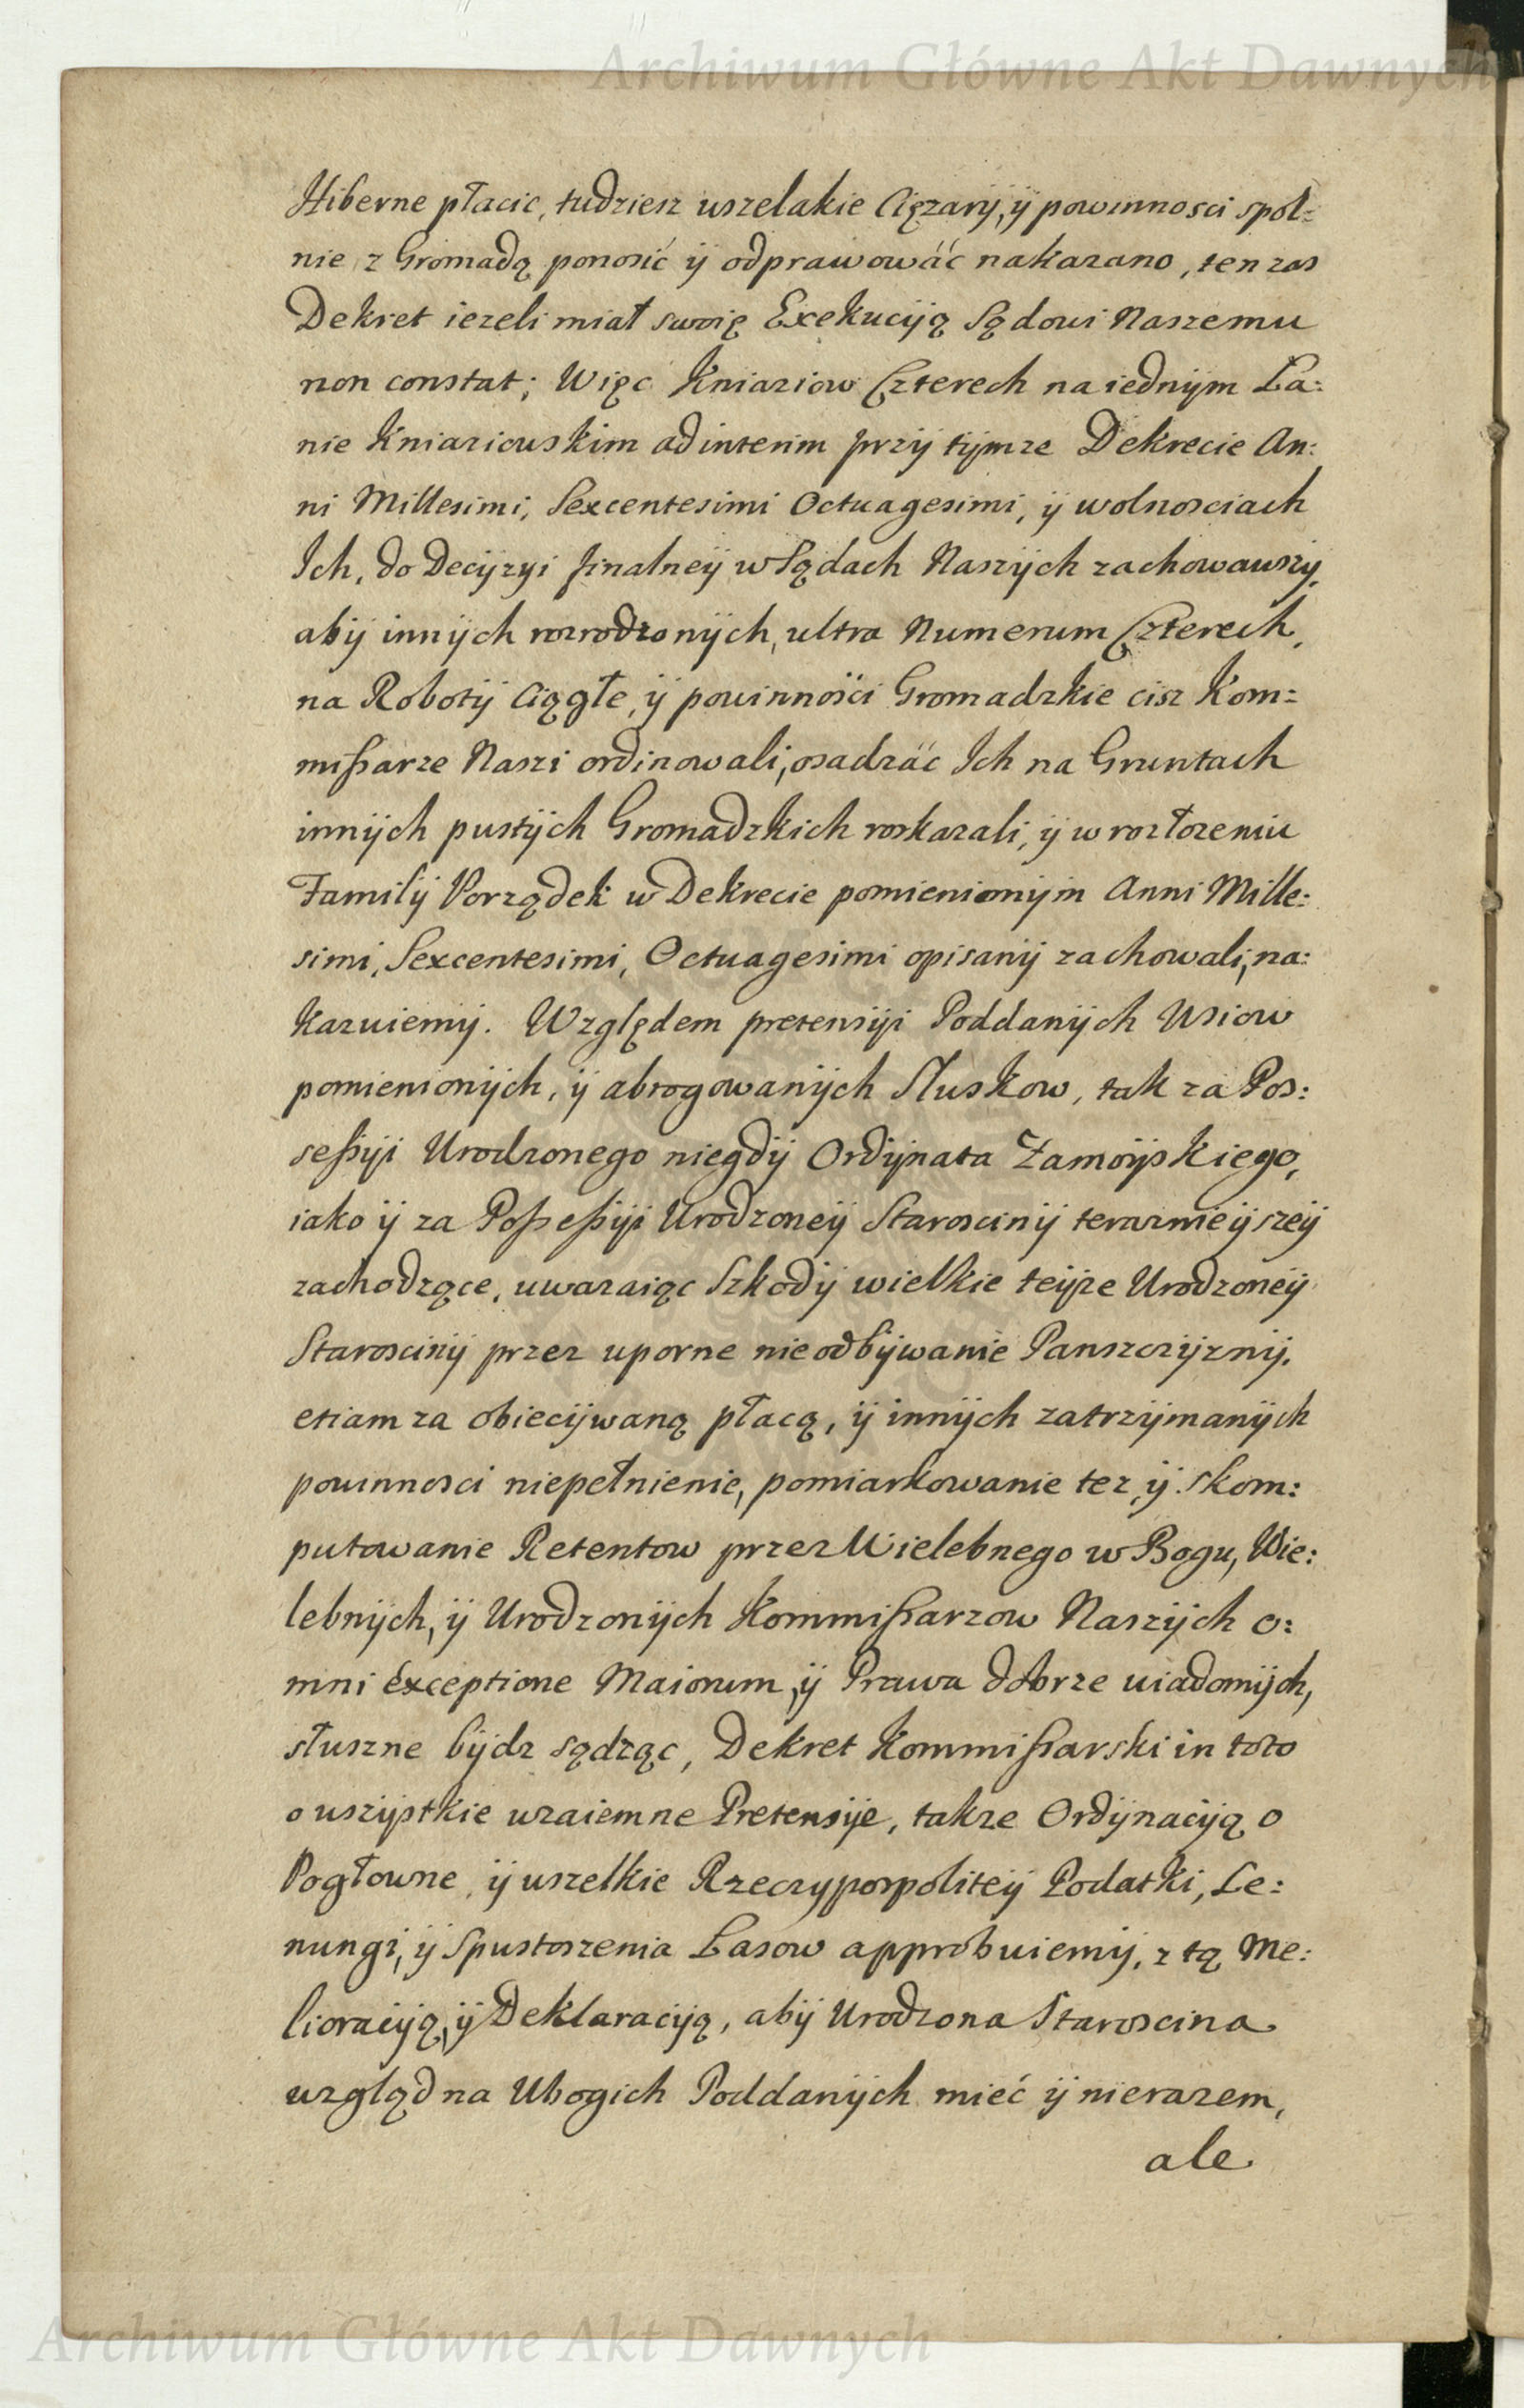 Archiwum Główne Akt Dawnych
Hiberne płacic, tudziesz wszelakie Cięzary, ÿ powinnosci spol=
nie z Gromadą ponosić ÿ odprawowáć nakazano, ten zas
Dekret iezeli miał swoię Exekucÿą Sądowi Naszemu
non constat; Więc Kniaziow Czterech na iednÿm Ła:
nie Kniaziowskim ad interim przÿ tÿmze Dekrecie An:
ni Millesimi, Sexcentesimi Octuagesimi, ÿ wolnosciach
Ich, do Decÿzyi finalneÿ w Sądach Naszÿch zachowawszy,
abÿ innÿch rozrodzonÿch, ultra Numerum Czterech,
na Robotÿ Ciągłe, ÿ powinności Gromadzkie cisz Kom=
mißarze Naszi ordinowali, osadzáć Ich na Gruntach
innÿch pustÿch Gromadzkich roskazali, ÿ w rozłozeniu
Familÿ Porządek w Dekrecie pomienionÿm Anni Mille:
simi, Sexcentesimi, Octuagesimi opisanÿ zachowali, na:
kazuiemÿ. Względem pretensÿi Poddanÿch Wsiow
pomienionÿch, ÿ abrogowanÿch Słuskow, tak za Pos:
seßÿi Urodzonego niegdÿ Ordÿnata Zamoÿskiego,
iako ÿ za Poßeßÿi Urodzoneÿ Staroscinÿ teraznieÿszeÿ
zachodzące, uwazaiąc Szkodÿ wielkie teÿze Urodzoneÿ
Staroscinÿ przez uporne nieodbÿwanie Panszczÿznÿ,
etiam za obiecÿwaną płacą, ÿ innÿch zatrzÿmanÿch
powinnosci niepełnienie, pomiarkowanie tez, ÿ skom:
putowanie Retentow przez Wielebnego w Bogu, Wie:
lebnÿch, ÿ Urodzonÿch Kommißarzow Naszÿch o:
mni exceptione Maiorum, ÿ Prawa dobrze wiadomÿch,
słuszne bÿdz sądząc, Dekret Kommißarski in toto
o wszÿstkie wzaiemne Pretensÿe, takze Ordÿnacÿą o
Pogłowne, ÿ wszelkie Rzeczypospoliteÿ Podatki, Le:
nungi, ÿ Spustoszenia Lasow approbuiemÿ, z tą Me:
lioracÿą, ÿ Deklaracÿą, abÿ Urodzona Staroscina
wzgląd na Ubogich Poddanÿch mieć ÿ nierazem,
ale
Archiwum Główne Akt Dawnych